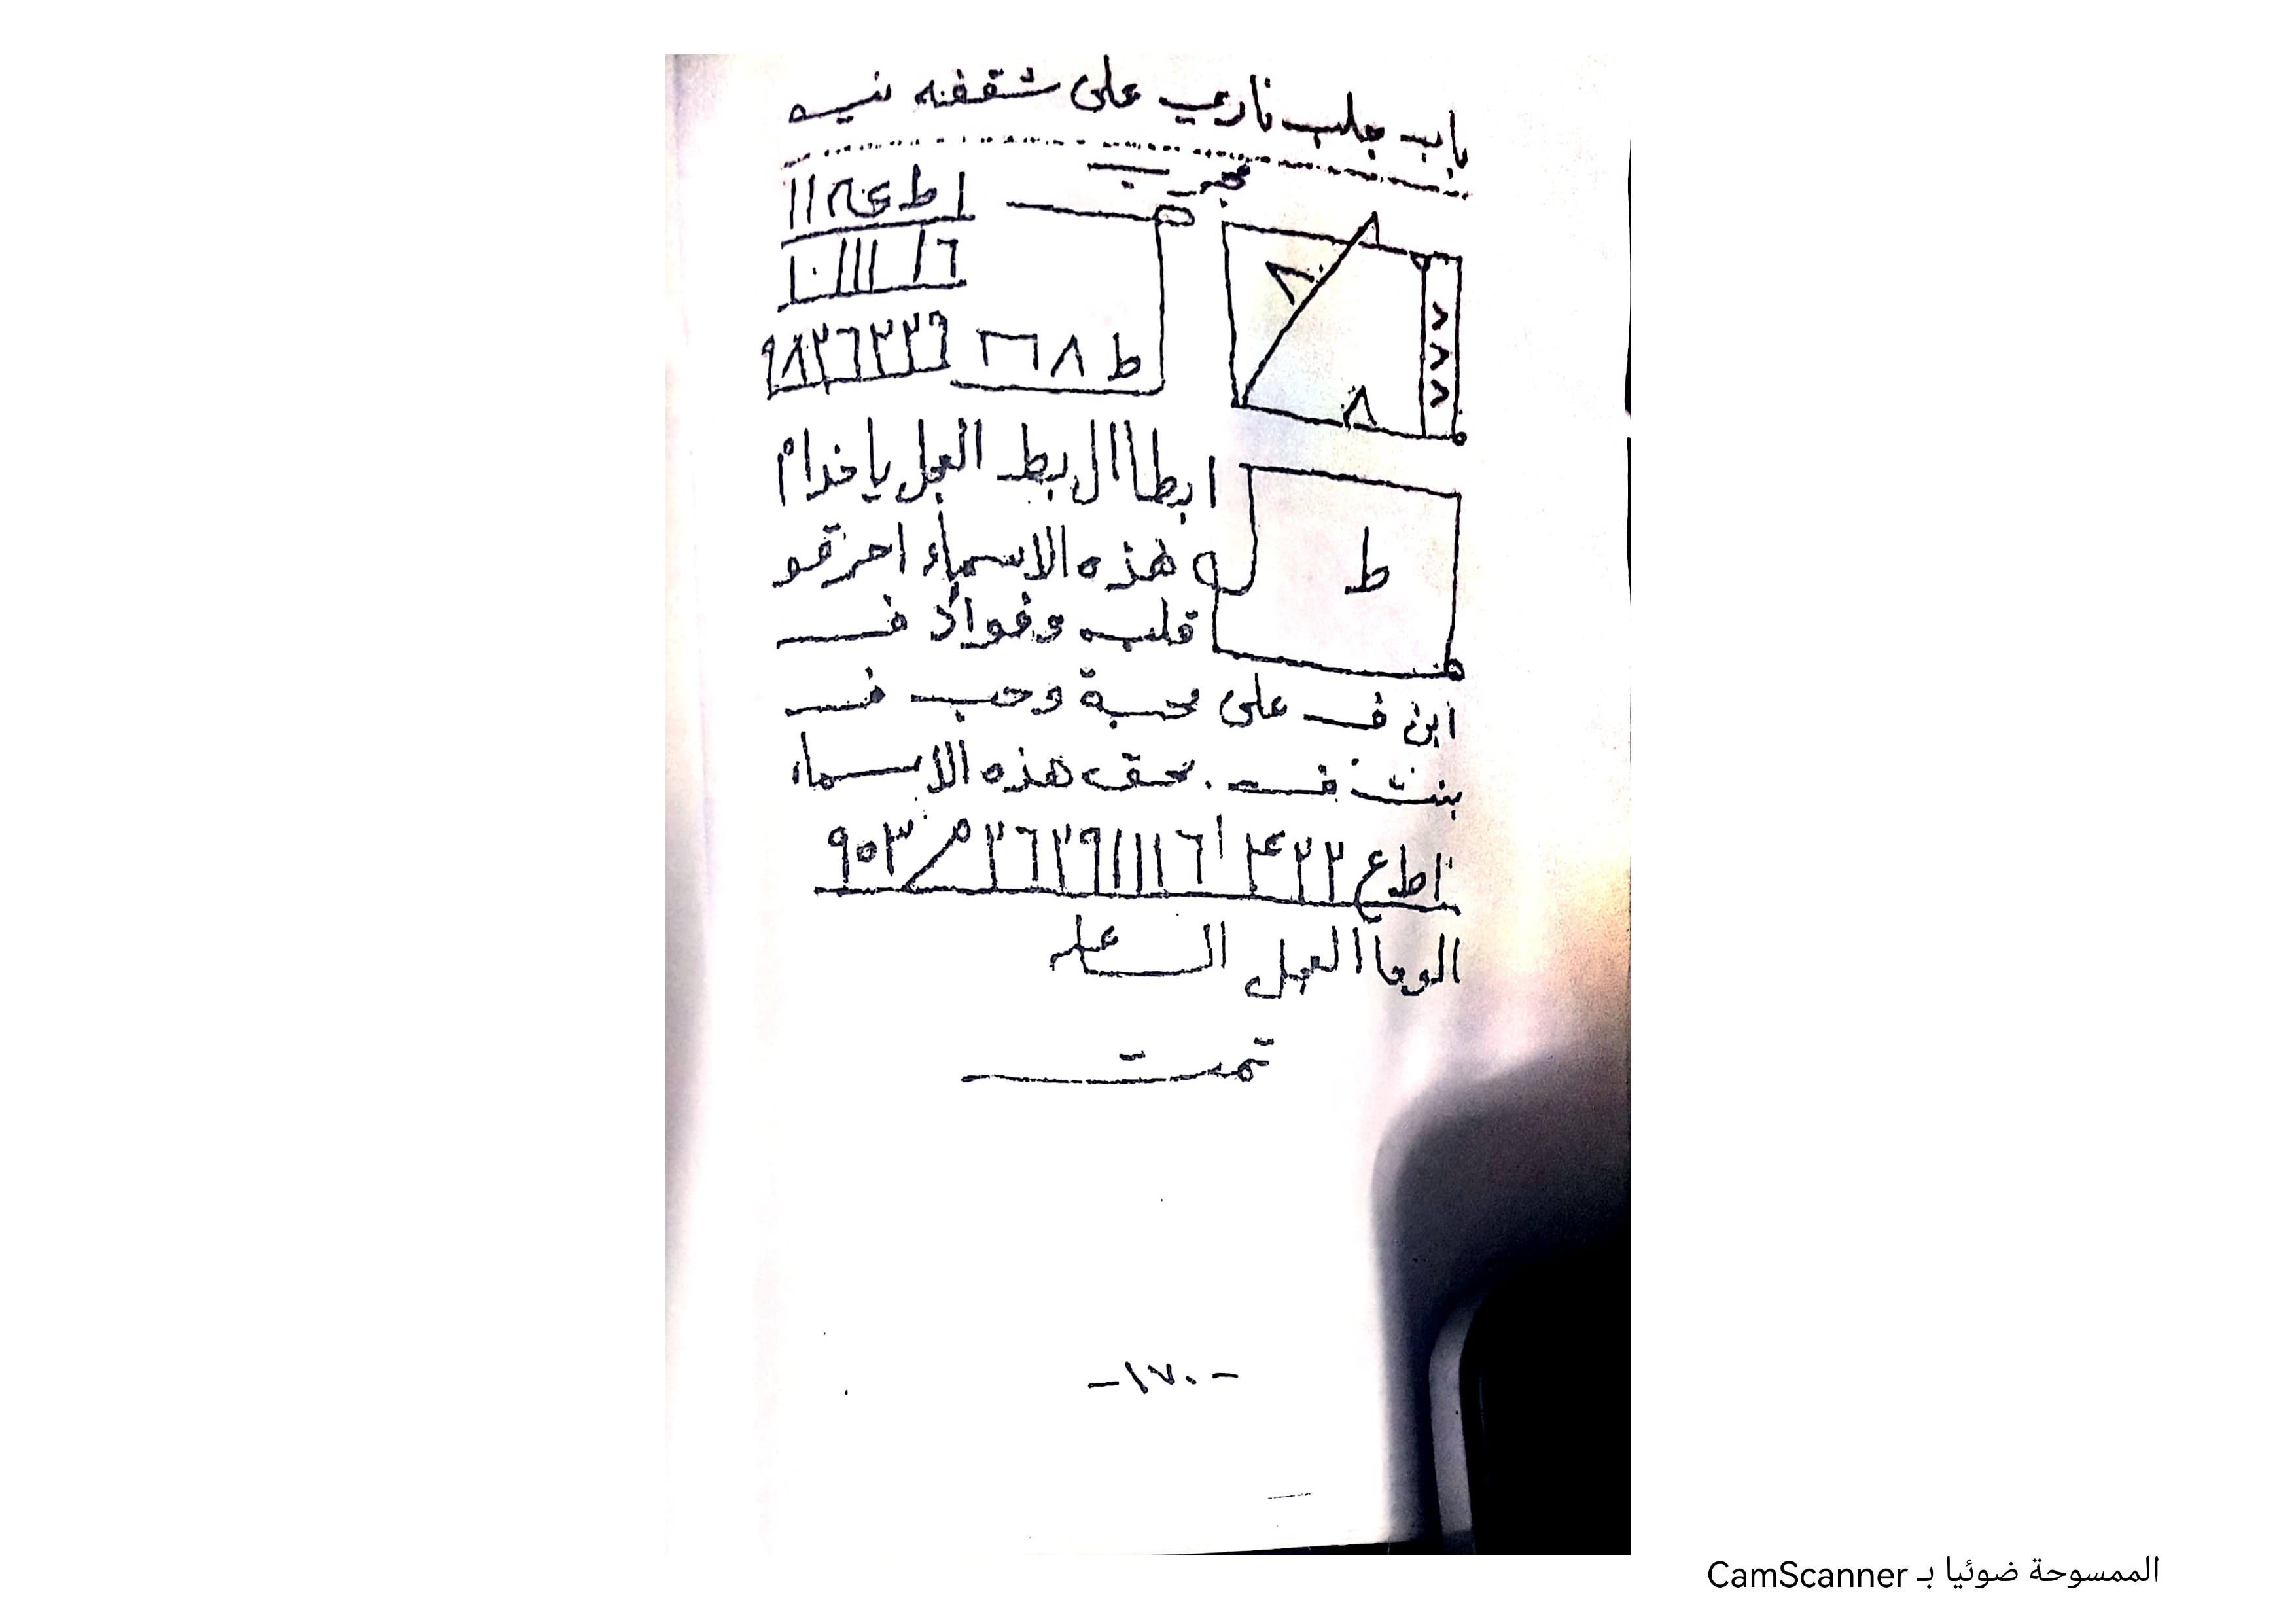 باب جلب ناري على شقفنه نيه
مجرب
ا ط ع
١١١ ١٦
ط ٨
٩٨٣٦٢٣٦
٨
٨
ابطاال بط العجل ياخدام
هذه الاسماء احرقو
ط
قلب وفواد ف
ابن ف على محبة وحب ف
بنت ف بحق هذه الاسماء
اطع ٢٢٤ ١ ١٦١١١٩٣٦٣ م ٩٥٣
الوحاا العجل الساعه
تمت
-١٧٠-
الممسوحة ضوئيا بـ CamScanner